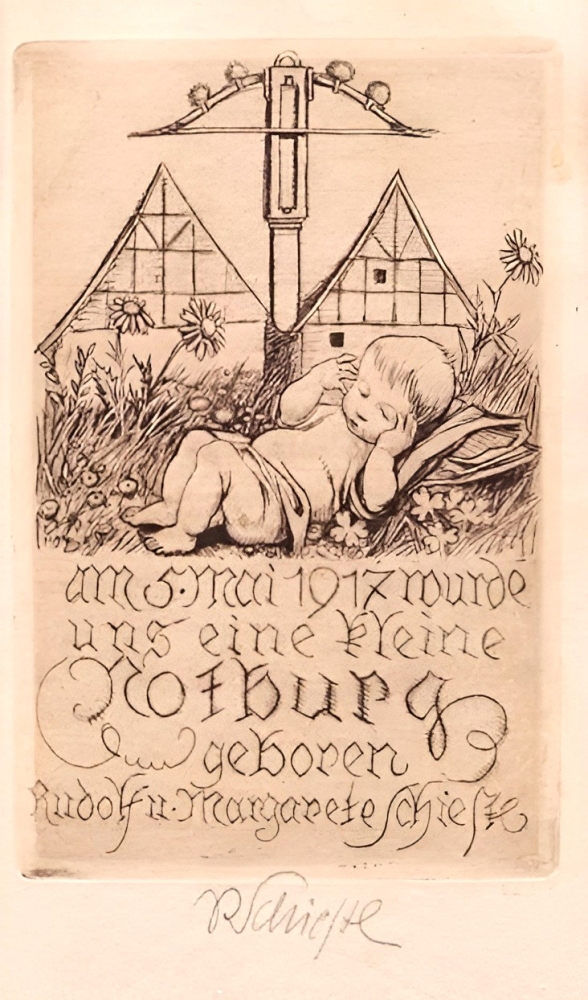 am 5. Mai 1917 wurde
uns eine kleine
Notburg
geboren
Rudolf u. Margarete Schiestl
R Schiestl